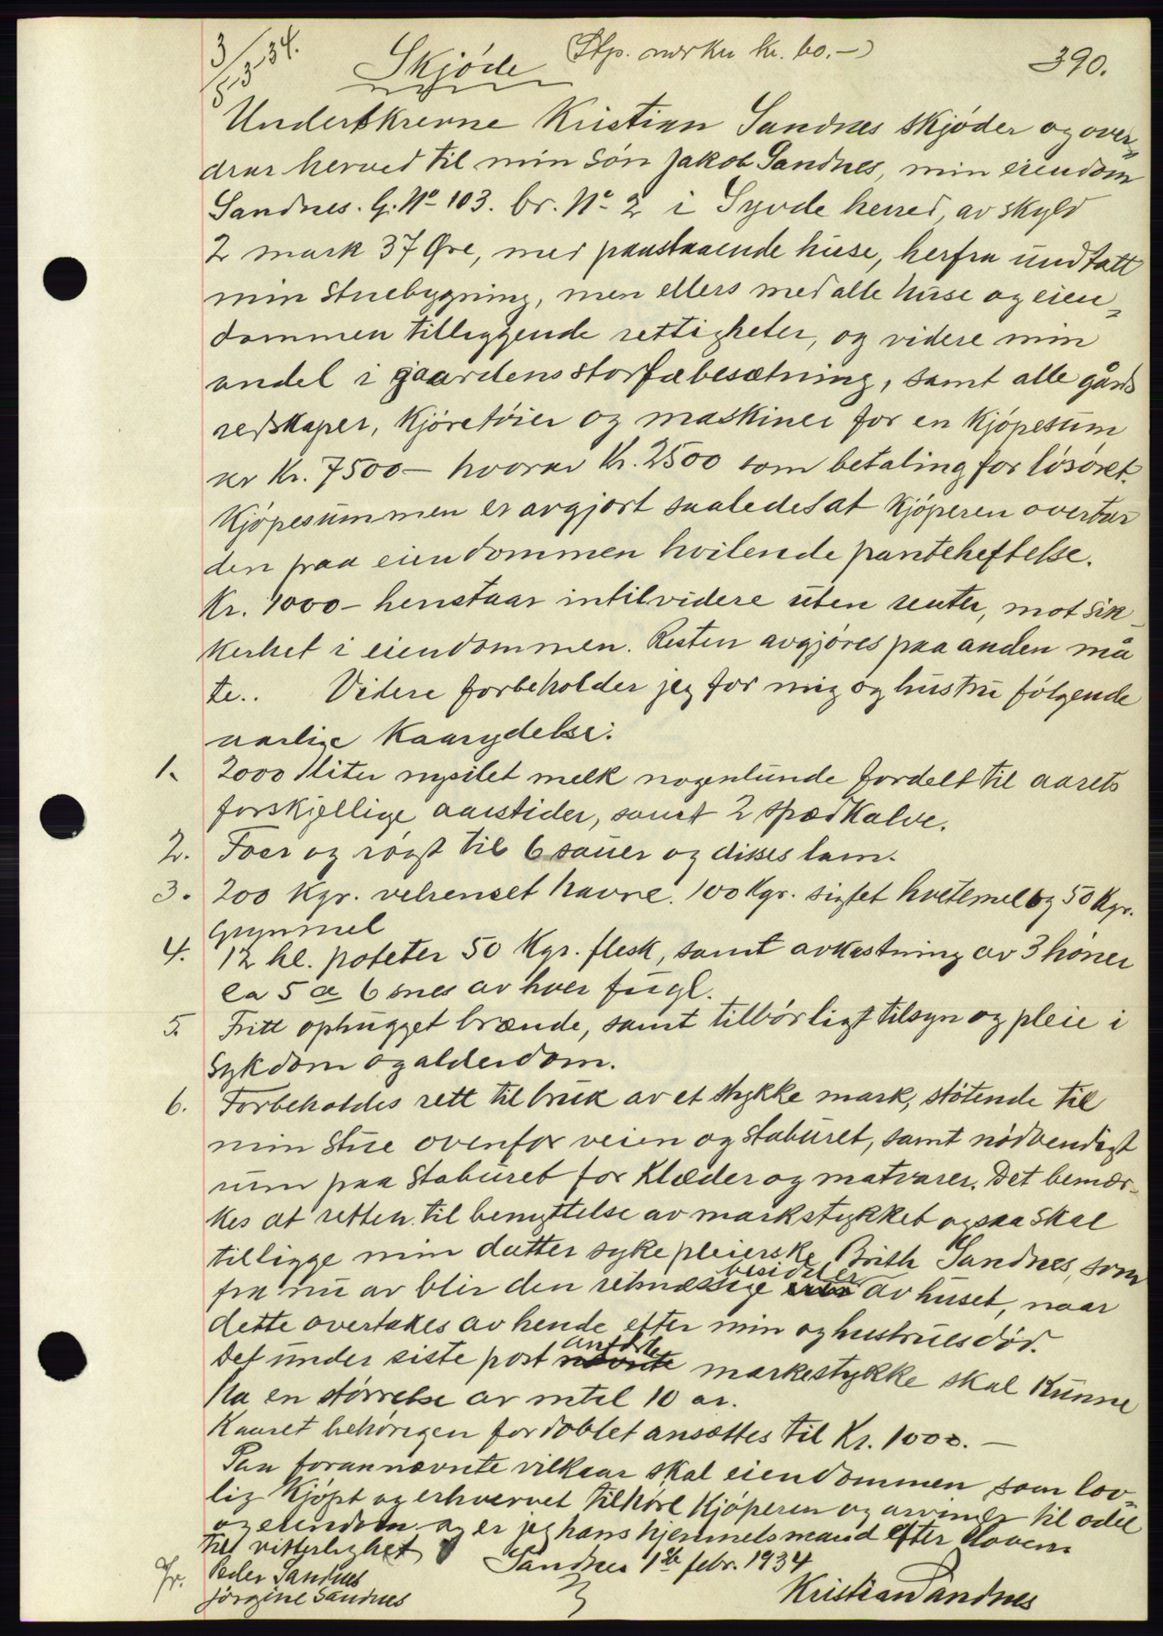 3/5-3-34.
Skjøde (Stp. merker kr. 60.-)
390.
Underskrevne Kristian Sandnes skjøder og over=
drar herved til min søn Jakob Sandnes, min eiendom
Sandnes. G. No 103. br. No 2 i Syvde herred, av skyld
2 mark 37 Øre, med paastaaende huse, herfra undtatt
min stuebygning, men ellers med alle huse og eien=
dommen tilliggende rettigheter, og videre min
andel i gaardens storfæbesætning, samt alle gårds
redskaper, kjøretøier og maskiner for en kjøpesum
av Kr. 7500- hvorav Kr. 2500 som betaling for løsøret.
Kjøpesummen er avgjort saaledes at kjøperen overtar
den paa eiendommen hvilende panteheftelse.
Kr. 1000- henstaar intil videre uten renter, mot sik-
kerhet i eiendommen. Resten avgjøres paa anden må
te.. Videre forbeholder jeg for mig og hustru følgende
aarlige kaarydelse:
1. 2000 liter nysilet melk nogenlunde fordelt til aarets
forskjellige aarstider, samt 2 spædkalve.
2. Foer og røgt til 6 sauer og disses lam.
3. 200 Kgr. velrenset havre. 100 Kgr. sigtet hvetemel og 50 Kgr.
grynmel
4. 12 hl. poteter 50 Kgr. flesk, samt avkastning av 3 høner
ca 5 a 6 snes av hver fugl.
5. Fritt ophugget brænde, samt tilbørligt tilsyn og pleie i
sykdom og alderdom.
6. Forbeholdes rett til bruk av et stykke mark, støtende til
min stue ovenfor veien og staburet, samt nødvendigt
rum paa staburet for klæder og matvarer. Det bemær-
kes at retten til benyttelse av markstykket ogsaa skal
tilligge min datter sykepleierske Brith Sandnes, som
fra nu av blir den retmæssige besidder av huset, naar
dette overtakes av hende efter min og hustrues død.
Det under siste post anførte markestykke skal kunne
ha en størrelse av intil 10 ar.
Kauret behørigen fordoblet ansættes til Kr. 1000.-
Paa forannævnte vilkaar skal eiendommen som lov=
lig kjøpt og erhvervet tilhøre kjøperen og arvinger til odel
og eiendom og er jeg hans hjemmelsmand efter loven.
Til vitterlighet Sandnes 1ste febr. 1934
Peder Sandnes
Jørgine Sandnes
Kristian Sandnes